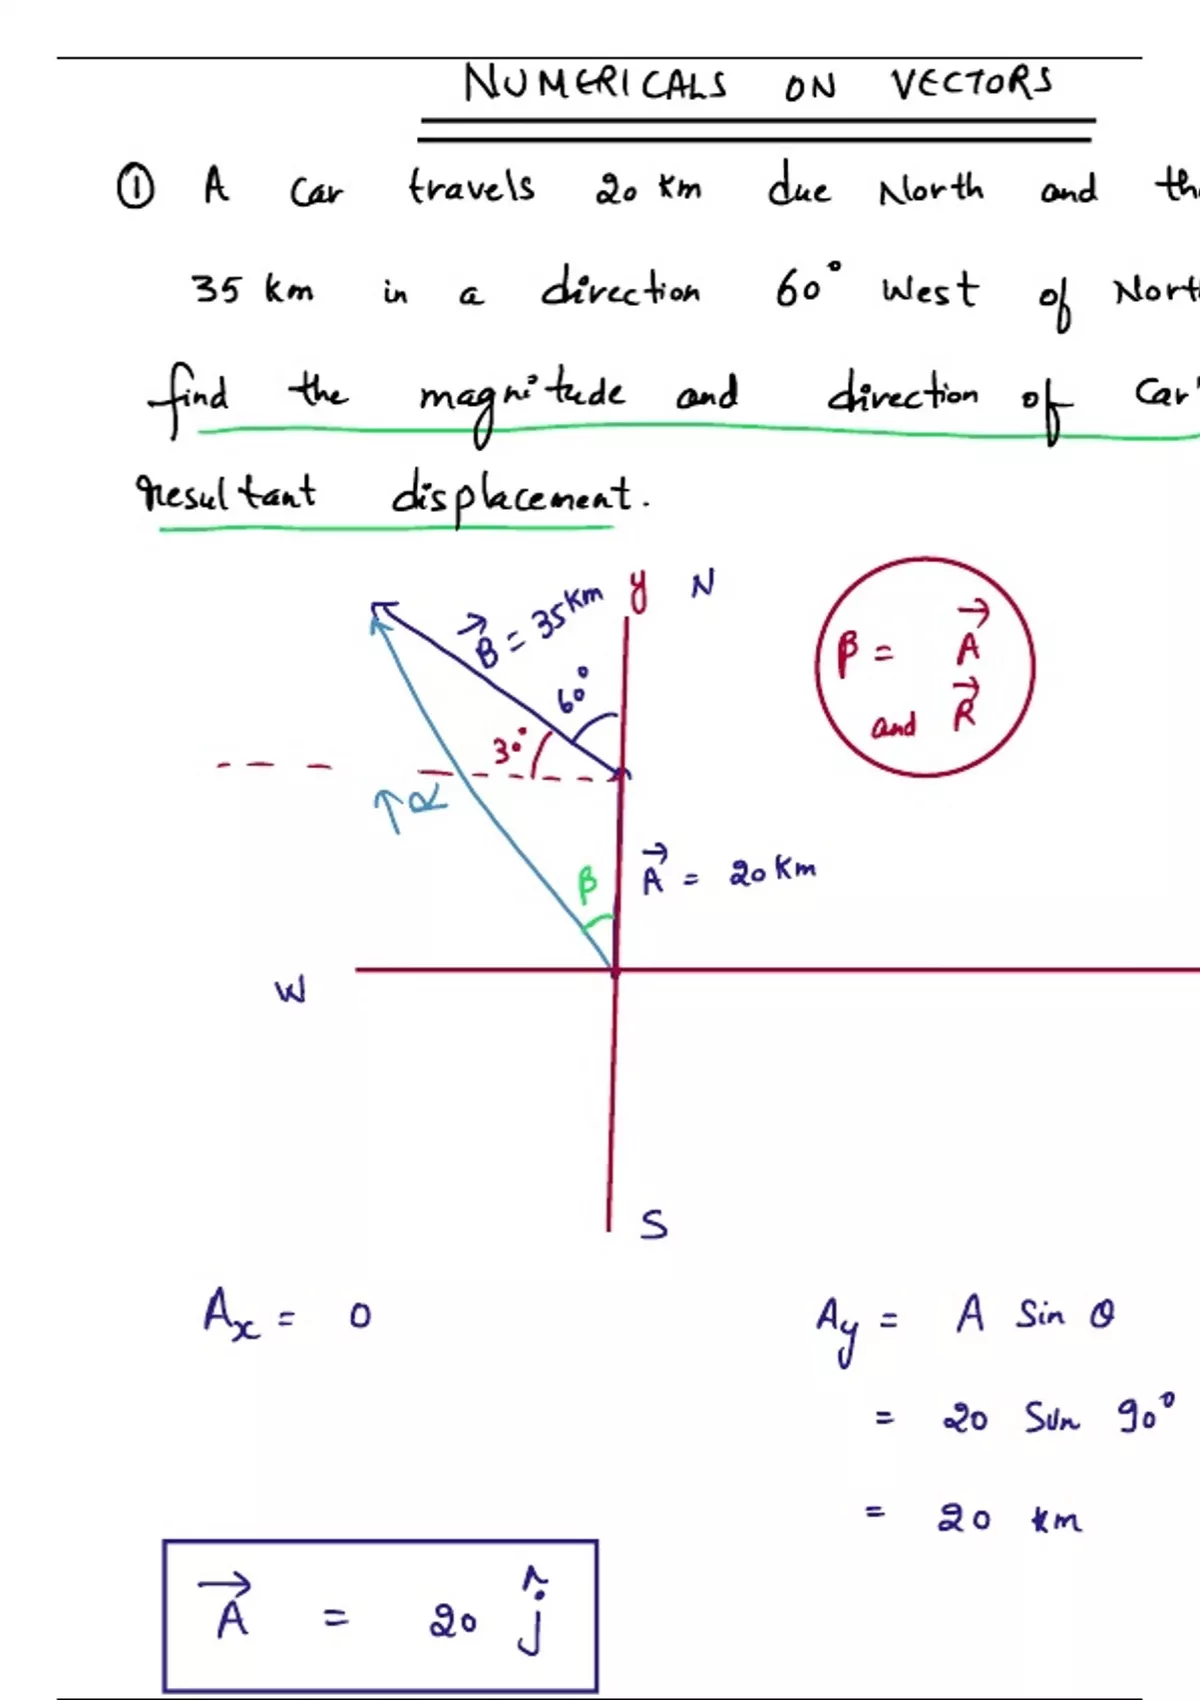 NUMERICALS ON VECTORS
① A car travels 20 km due North and
35 km in a direction 60° West of
find the magnitude and direction of Car'
resultant displacement.
y N
B⃗ = 35 km
60°
β = A⃗
and R⃗
30°
R⃗
β
A⃗ = 20 km
W
S
Aₓ = 0
Ay = A Sin θ
= 20 Sin 90°
= 20 km
A⃗ = 20 ĵ